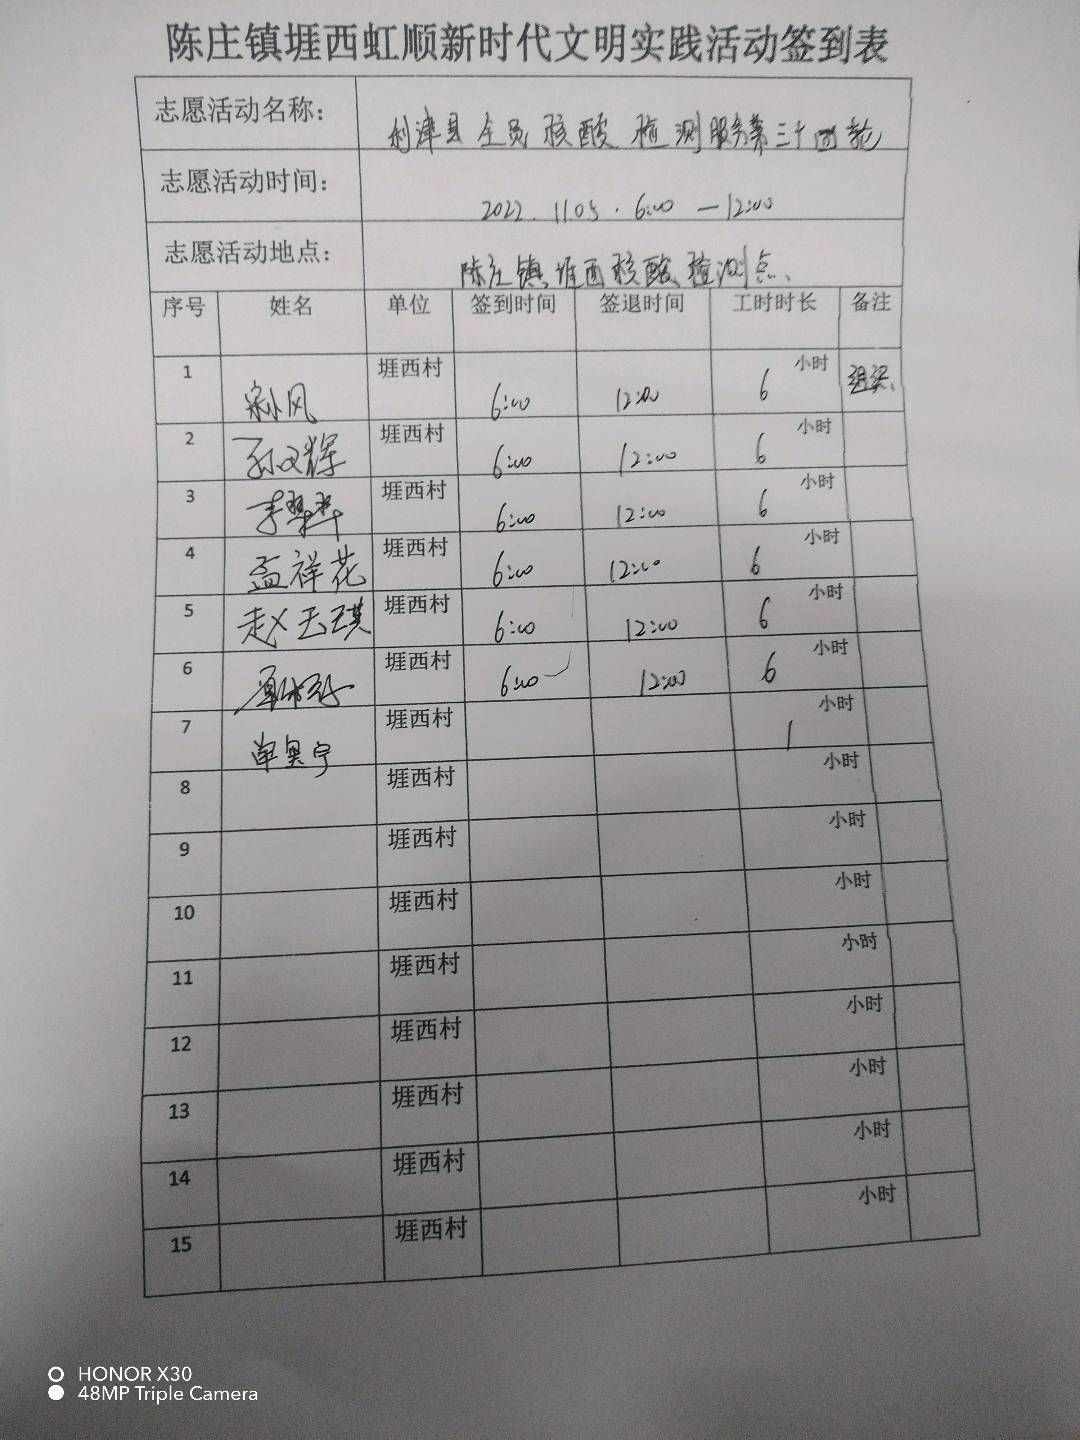 陈庄镇堐西虹顺新时代文明实践活动签到表
志愿活动名称： 利津县全员核酸检测服务第三十四轮
志愿活动时间： 2022.1105.6:00—12:00
志愿活动地点： 陈庄镇堐西核酸检测点、
序号 姓名 单位 签到时间 签退时间 工时时长 备注
1 堐西村 6:00 12:00 6 小时
2 孙文辉 堐西村 6:00 12:00 6 小时
3 李翠华 堐西村 6:00 12:00 6 小时
4 孟祥花 堐西村 6:00 12:00 6 小时
5 赵玉琪 堐西村 6:00 12:00 6 小时
6 堐西村 6:00 12:00 6 小时
7 单奥宁 堐西村 小时
8 堐西村 小时
9 堐西村 小时
10 堐西村 小时
11 堐西村 小时
12 堐西村 小时
13 堐西村 小时
14 堐西村 小时
15 堐西村 小时
HONOR X30
48MP Triple Camera